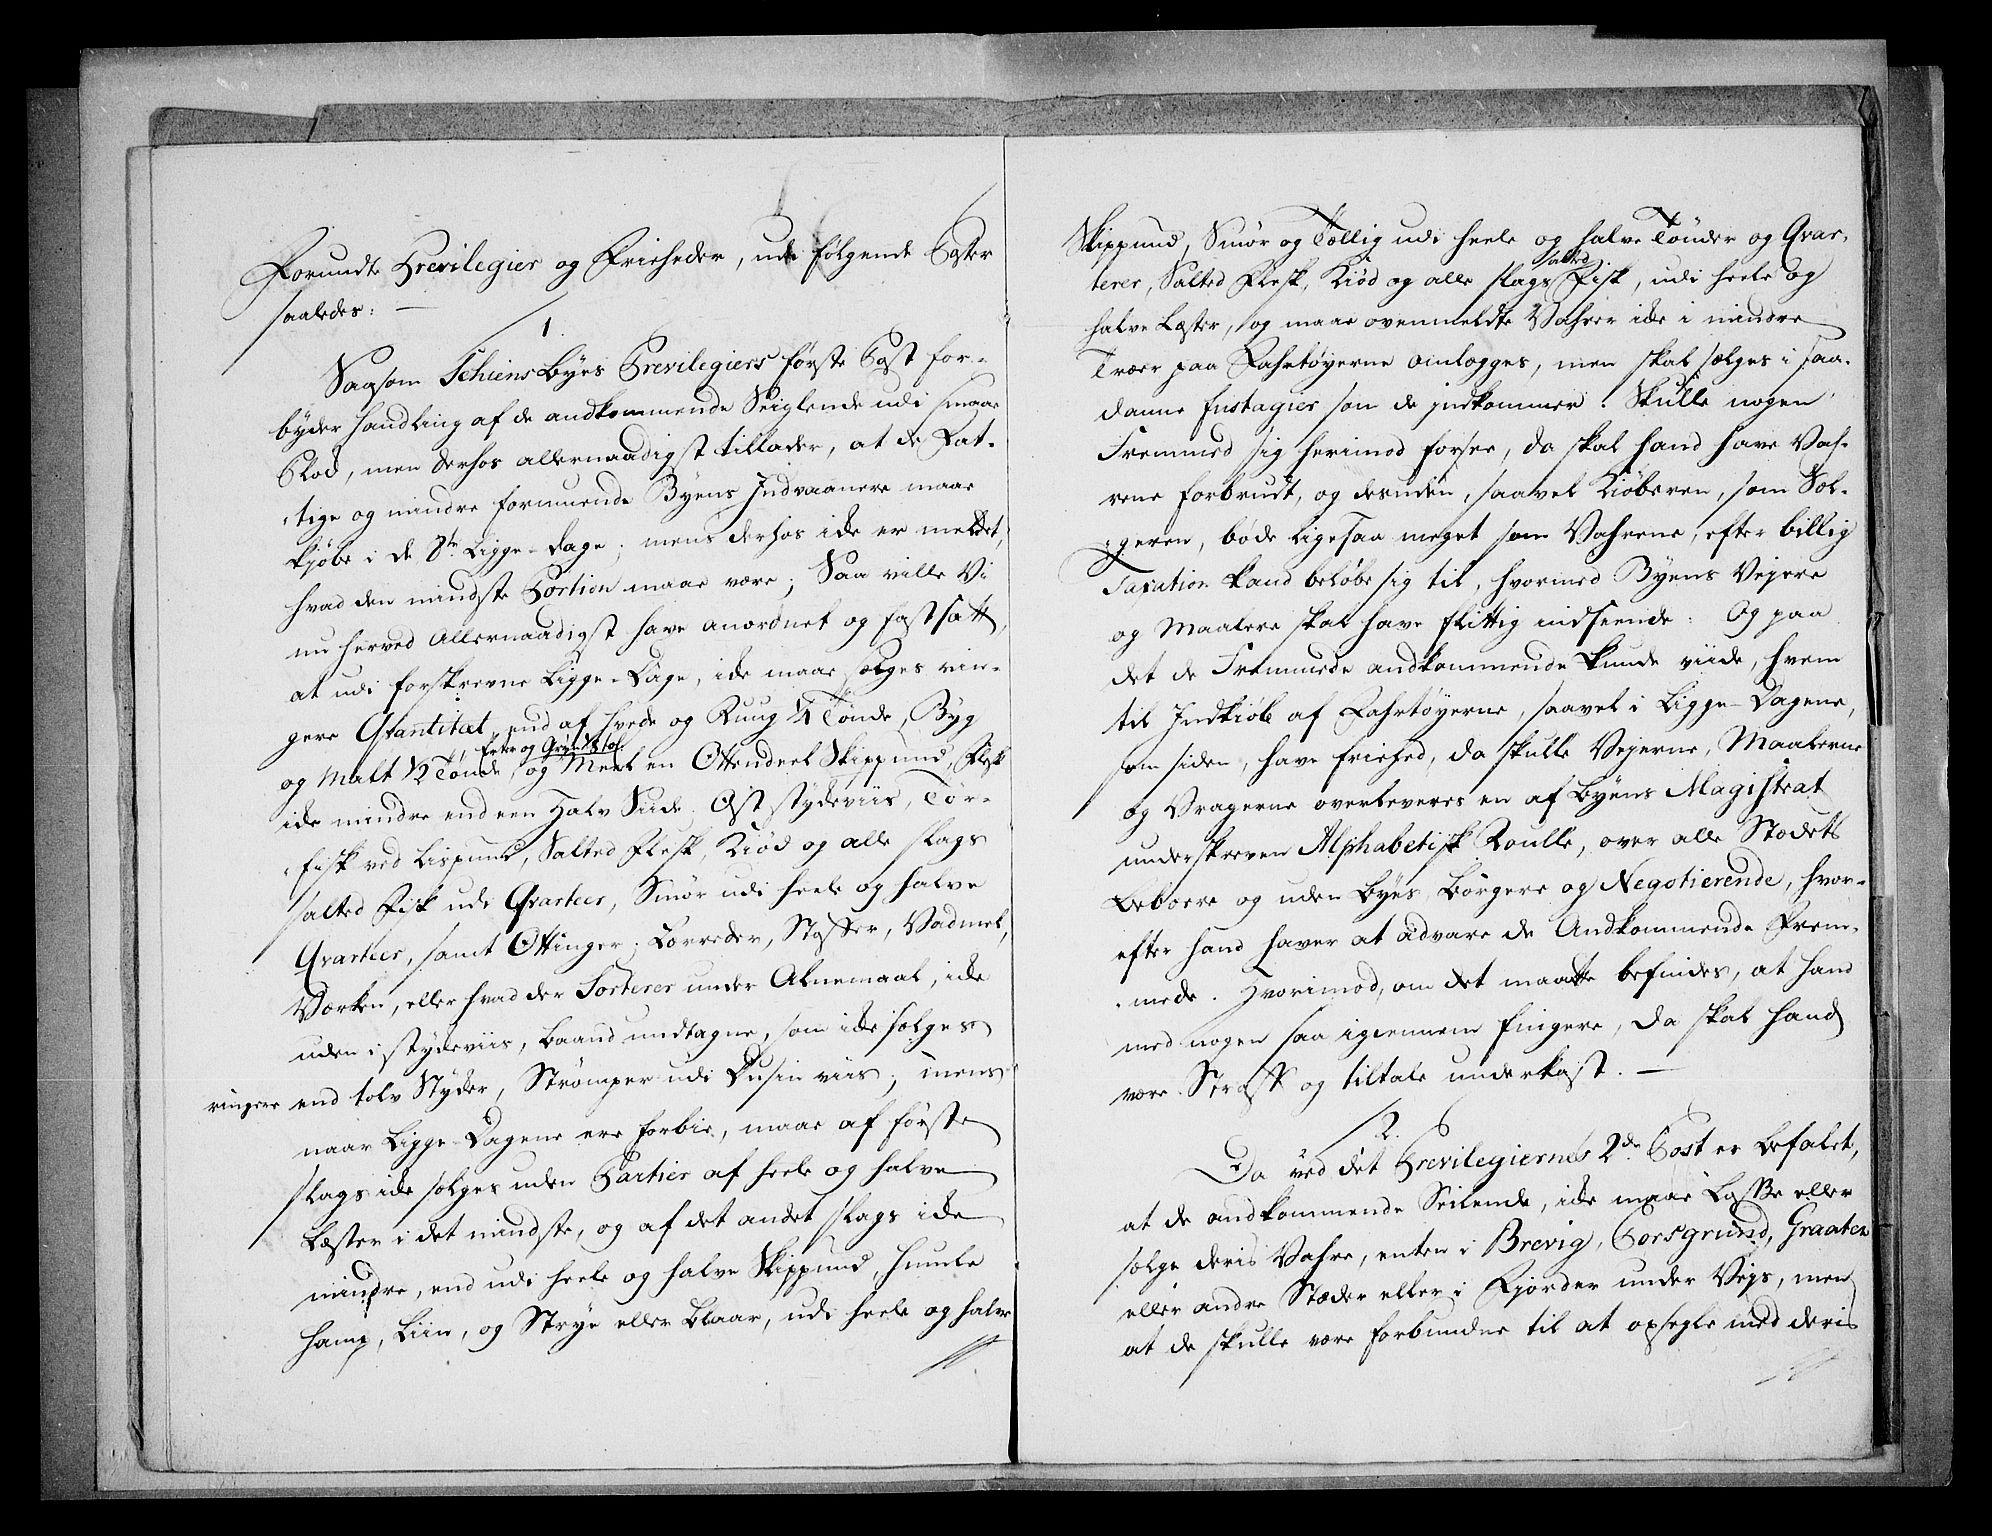 Forundte Previlegier og Frieheder, udi følgende Poster
saaledes: —
1.
Saasom Schiens Byes Previlegiers første Post for-
byder Handling af de andkommende Seiglende udi smaae
Plod, men derhos allernaadigst tillader, at de Fat-
tige og mindre formuende Byens Indvaanere maae
kjøbe i de 8te Ligge-Dage; mens derhos icke er meldet,
hvad den mindste Portion maae være; Saa ville Vi
nu herved Allernaadigst have anordnet og fastsatt,
at udi forskrevne Ligge-Dage, icke maae sælges rin-
gere Qvantitæt, end af Hvede og Ruug ¼ Tønde, Byg
og Malt ½ Tønde, Erter og Gryn
og Meel en Ottendeel Skippund, Flesk
icke mindre end een Halv Siide, Ost støckeviis, Tør-
fisk ved Lispund, Salted Flesk, Kiød og alle slags
salted Fisk udi Qvarteer, Smør udi heele og halve
Qvarteer, samt Ottinger; Lærreder, Stoffer, Vadmel,
Værken, eller hvad der Sorterer under Alnemaal, icke
uden i støckeviis, Baand undtagne, som icke sælges
ringere end tolv Støcker, Strømper udi Dusin viis; mens
naar Ligge-Dagene ere forbie, maae af første
slags icke sælges uden Partier af heele og halve
Læster i det mindste, og af det andet slags icke
mindre, end udi heele og halve Skippund, Humle
Hamp, Liin, og Strye eller Blaar, udi heele og halve
Skippund, Smør og Tællig udi heele og halve Tønder og Qvar-
terer, Salted Flesk, Kiød og alle slags salted Fisk, udi heele og
halve Læster, og maae ovenmeldte Vahrer icke i mindre
Træer paa Fahrtøyerne omlægges, men skal sælges i saa-
danne Fustagier som de indkommer. Skulle nogen
Fremmed sig herimod forsee, da skal hand have Vah-
rene forbrudt, og desuden, saavel Kiøberen, som Sæl-
geren, bøde ligesaa meget som Vahrene, efter billig
Taxation kand beløbe sig til, hvormed Byens Vejere
og Maalere skal have flittig indseende: Og paa
det de Fremmede andkommende kunde viide, hvem
til Indkiøb af Fahrtøyerne, saavel i Ligge-Dagene,
som siden, have friehed, da skulle Vejerne, Maalerne
og Vragerne overleveres en af Byens Magistrat
underskreven Alphabetisk Roulle, over alle Stædets
Beboere og uden Byes Borgere og Negotierende, hvor-
efter hand haver at advare de Andkommende Frem-
mede. Hvorimod, om det maatte befindes, at hand
med nogen saa igiennem fingere, da skal hand
være Straff og tiltale underkast. —
2.
Da ved det Previlegiernes 2de Post er befalet,
at de andkommende Seilende, icke maae Losse eller
sælge deris Vahre, enten i Brevig, Porsgrund, Graaten
eller andre Stæder eller i Fjorder under Vejs, men
at de skulle være forbunden til at opsegle med deris